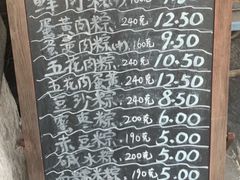 鲜肉粽
蛋黄肉粽 240克 12.50
蛋黄肉粽(小) 160克 9.50
五花肉粽 240克 10.50
五花肉蛋黄 240克 12.50
豆沙粽 240克 8.50
蜜枣粽 200克 6.00
赤豆粽 190克 5.00
碱水粽 200克 5.00
米粽 190克 5.00